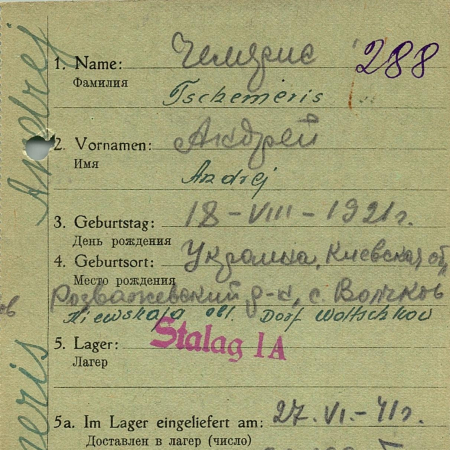 Andrej
1. Name: Чемерис 288
Фамилия
Tschemeris
2. Vornamen: Андрей
Имя
Andrej
3. Geburtstag: 18-VIII-1921г.
День рождения
4. Geburtsort: Украина, Киевская обл
Место рождения
Розважевский р-н, с. Волчков
Kiewskaja obl. Dorf Woltschkow
5. Lager: Stalag IA
Лагерь
5a. Im Lager eingeliefert am: 27.VI-41г.
Доставлен в лагерь (число)